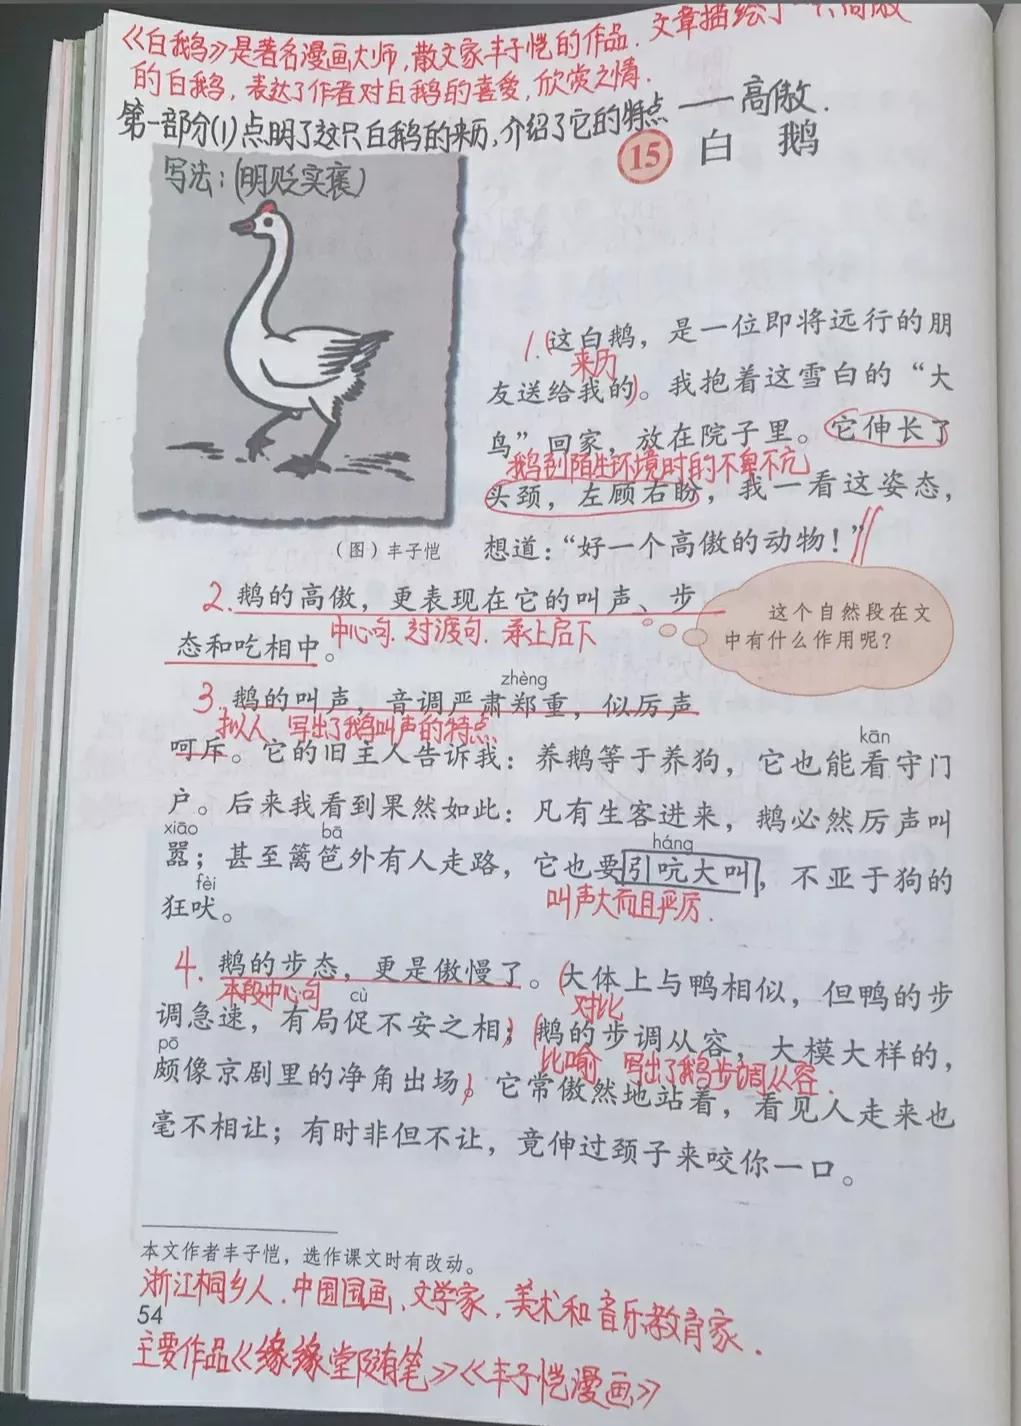 《白鹅》是著名漫画大师,散文家丰子恺的作品.文章描绘了一只高傲
的白鹅,表达了作者对白鹅的喜爱,欣赏之情.
第一部分(1)点明了这只白鹅的来历,介绍了它的特点——高傲.
写法:(明贬实褒)
15 白 鹅
1.(这白鹅,是一位即将远行的朋
来历
友送给我的)。我抱着这雪白的“大
鸟”回家,放在院子里。它伸长了
鹅到陌生环境时的不卑不亢
头颈,左顾右盼,我一看这姿态,
想道:“好一个高傲的动物!”//
(图)丰子恺
2.鹅的高傲,更表现在它的叫声、步
态和吃相中。
中心句.过渡句.承上启下
这个自然段在文
中有什么作用呢?
zhèng
3.鹅的叫声,音调严肃郑重,似厉声
拟人 写出了鹅叫声的特点
kān
呵斥。它的旧主人告诉我:养鹅等于养狗,它也能看守门
户。后来我看到果然如此:凡有生客进来,鹅必然厉声叫
xiāo bā háng
嚣;甚至篱笆外有人走路,它也要引吭大叫,不亚于狗的
fèi
狂吠。
叫声大而且严厉.
4.鹅的步态,更是傲慢了。(大体上与鸭相似,但鸭的步
本段中心句 cù 对比
调急速,有局促不安之相;)(鹅的步调从容,大模大样的,
pō 比喻 写出了鹅步调从容.
颇像京剧里的净角出场)。它常傲然地站着,看见人走来也
毫不相让;有时非但不让,竟伸过颈子来咬你一口。
本文作者丰子恺,选作课文时有改动。
浙江桐乡人.中国国画、文学家.美术和音乐教育家.
54
主要作品《缘缘堂随笔》《丰子恺漫画》